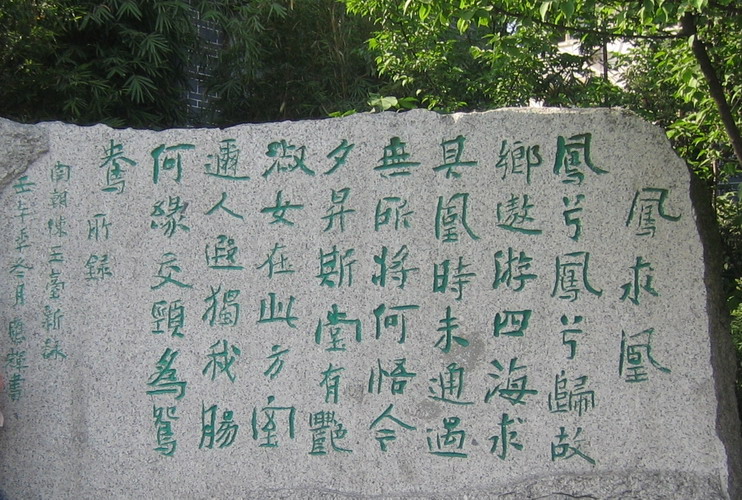 鳳求凰
鳳兮鳳兮歸故
鄉遨游四海求
其凰時未通遇
無所將何悟今
夕昇斯堂有艷
淑女在此方室
邇人遐獨我腸
何緣交頸為鴛
鴦 所錄
南朝陳玉臺新詠
壬午年冬月 書